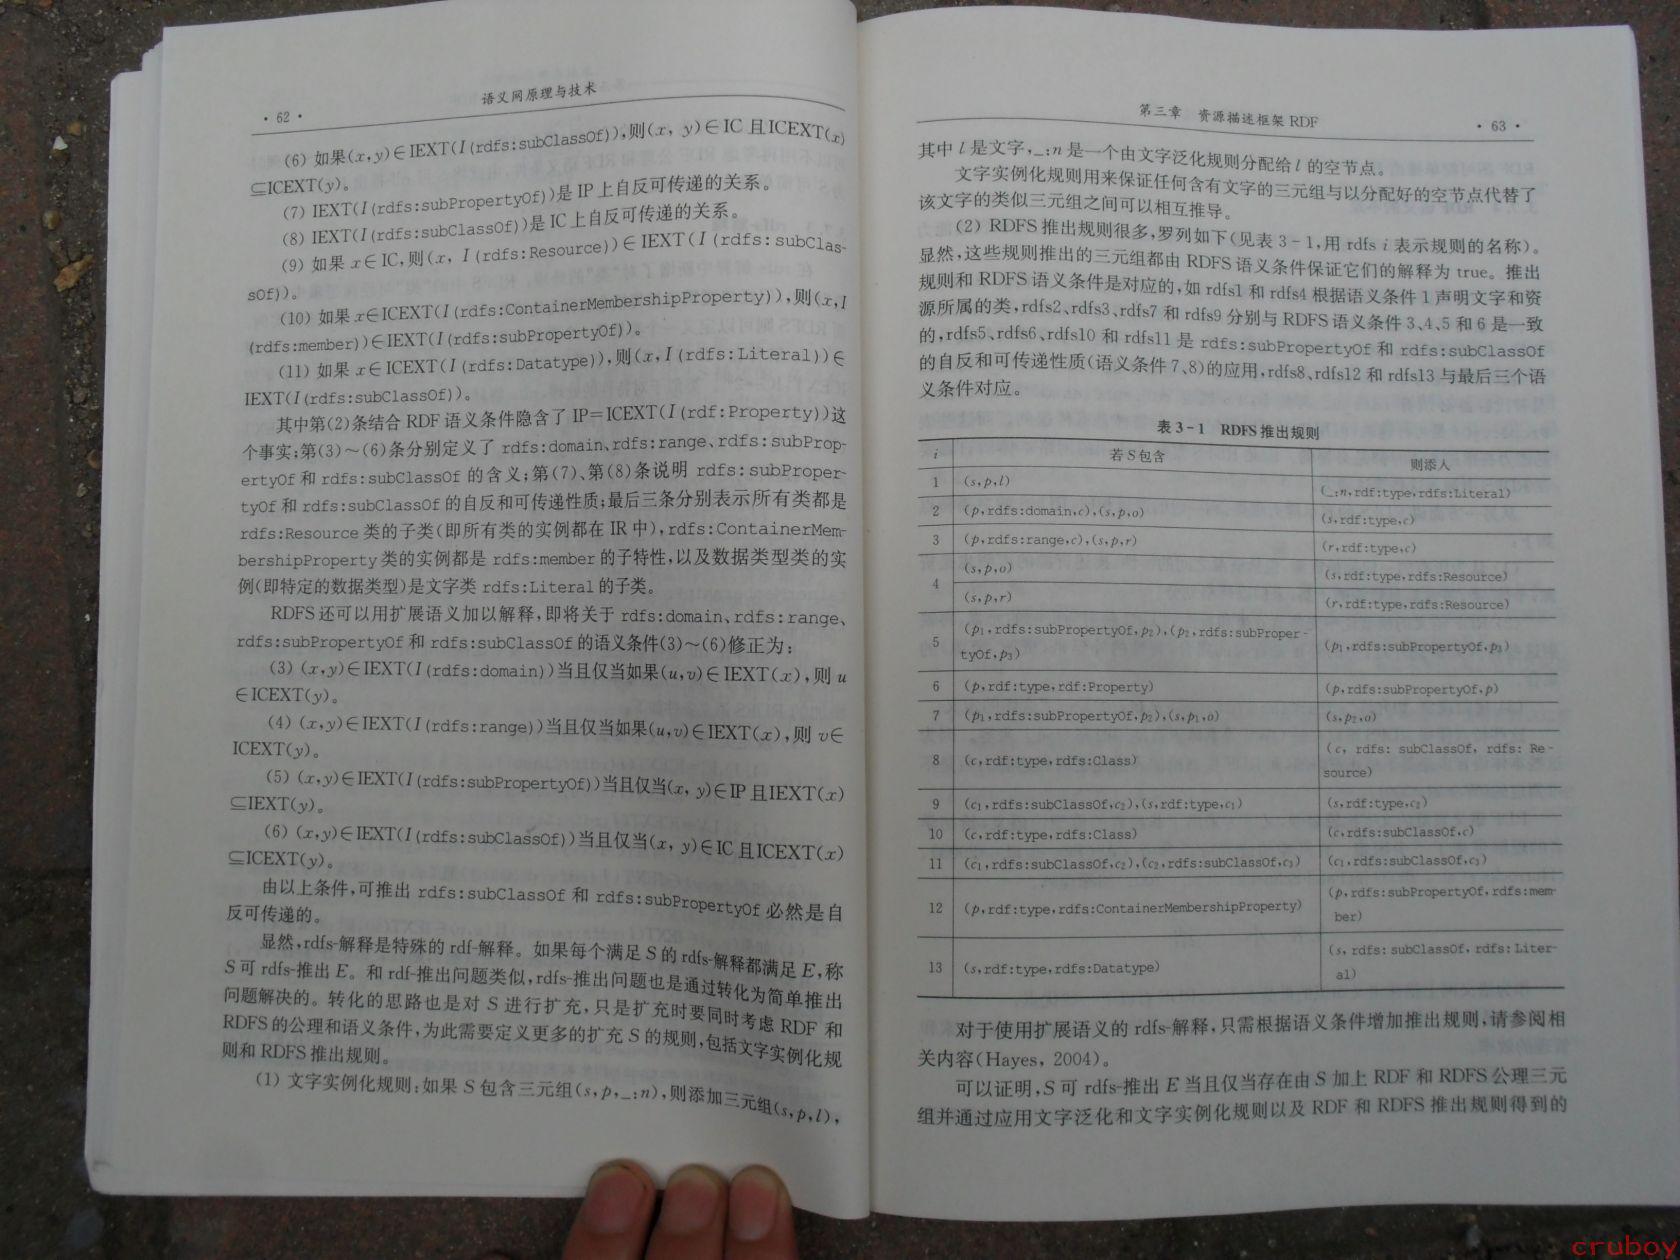 · 62 ·
语义网原理与技术
(6) 如果(x,y)∈IEXT(I(rdfs:subClassOf)),则(x, y)∈IC 且ICEXT(x)
⊆ICEXT(y)。
(7) IEXT(I(rdfs:subPropertyOf))是 IP 上自反可传递的关系。
(8) IEXT(I(rdfs:subClassOf))是 IC 上自反可传递的关系。
(9) 如果 x∈IC,则(x, I(rdfs:Resource))∈IEXT(I(rdfs:subClas-
sOf))。
(10) 如果 x∈ICEXT(I(rdfs:ContainerMembershipProperty)),则(x,I
(rdfs:member))∈IEXT(I(rdfs:subPropertyOf))。
(11) 如果 x∈ICEXT(I(rdfs:Datatype)),则(x,I(rdfs:Literal))∈
IEXT(I(rdfs:subClassOf))。
其中第(2)条结合 RDF 语义条件隐含了 IP=ICEXT(I(rdf:Property))这
个事实;第(3)～(6)条分别定义了 rdfs:domain、rdfs:range、rdfs:subProp-
ertyOf 和 rdfs:subClassOf 的含义;第(7)、第(8)条说明 rdfs:subProper-
tyOf 和 rdfs:subClassOf 的自反和可传递性质;最后三条分别表示所有类都是
rdfs:Resource 类的子类(即所有类的实例都在 IR 中),rdfs:ContainerMem-
bershipProperty 类的实例都是 rdfs:member 的子特性,以及数据类型类的实
例(即特定的数据类型)是文字类 rdfs:Literal 的子类。
RDFS 还可以用扩展语义加以解释,即将关于 rdfs:domain、rdfs:range、
rdfs:subPropertyOf 和 rdfs:subClassOf 的语义条件(3)～(6)修正为:
(3) (x,y)∈IEXT(I(rdfs:domain))当且仅当如果(u,v)∈IEXT(x),则 u
∈ICEXT(y)。
(4) (x,y)∈IEXT(I(rdfs:range))当且仅当如果(u,v)∈IEXT(x),则 v∈
ICEXT(y)。
(5) (x,y)∈IEXT(I(rdfs:subPropertyOf))当且仅当(x, y)∈IP 且IEXT(x)
⊆IEXT(y)。
(6) (x,y)∈IEXT(I(rdfs:subClassOf))当且仅当(x, y)∈IC 且ICEXT(x)
⊆ICEXT(y)。
由以上条件,可推出 rdfs:subClassOf 和 rdfs:subPropertyOf 必然是自
反可传递的。
显然,rdfs-解释是特殊的 rdf-解释。如果每个满足 S 的 rdfs-解释都满足 E,称
S 可 rdfs-推出 E。和 rdf-推出问题类似,rdfs-推出问题也是通过转化为简单推出
问题解决的。转化的思路也是对 S 进行扩充,只是扩充时要同时考虑 RDF 和
RDFS 的公理和语义条件,为此需要定义更多的扩充 S 的规则,包括文字实例化规
则和 RDFS 推出规则。
(1) 文字实例化规则:如果 S 包含三元组(s,p,_:n),则添加三元组(s,p,l),
第三章 资源描述框架 RDF
· 63 ·
其中 l 是文字,_:n 是一个由文字泛化规则分配给 l 的空节点。
文字实例化规则用来保证任何含有文字的三元组与以分配好的空节点代替了
该文字的类似三元组之间可以相互推导。
(2) RDFS 推出规则很多,罗列如下(见表 3-1,用 rdfs i 表示规则的名称)。
显然,这些规则推出的三元组都由 RDFS 语义条件保证它们的解释为 true。推出
规则和 RDFS 语义条件是对应的,如 rdfs1 和 rdfs4 根据语义条件 1 声明文字和资
源所属的类,rdfs2、rdfs3、rdfs7 和 rdfs9 分别与 RDFS 语义条件 3、4、5 和 6 是一致
的,rdfs5、rdfs6、rdfs10 和 rdfs11 是 rdfs:subPropertyOf 和 rdfs:subClassOf
的自反和可传递性质(语义条件 7、8)的应用,rdfs8、rdfs12 和 rdfs13 与最后三个语
义条件对应。
表 3-1 RDFS 推出规则
i 若 S 包含 则添入
1 (s,p,l) (_:n,rdf:type,rdfs:Literal)
2 (p,rdfs:domain,c),(s,p,o) (s,rdf:type,c)
3 (p,rdfs:range,c),(s,p,r) (r,rdf:type,c)
4 (s,p,o) (s,rdf:type,rdfs:Resource)
(s,p,r) (r,rdf:type,rdfs:Resource)
5 (p₁,rdfs:subPropertyOf,p₂),(p₂,rdfs:subProper-
tyOf,p₃) (p₁,rdfs:subPropertyOf,p₃)
6 (p,rdf:type,rdf:Property) (p,rdfs:subPropertyOf,p)
7 (p₁,rdfs:subPropertyOf,p₂),(s,p₁,o) (s,p₂,o)
8 (c,rdf:type,rdfs:Class) (c, rdfs: subClassOf, rdfs: Re-
source)
9 (c₁,rdfs:subClassOf,c₂),(s,rdf:type,c₁) (s,rdf:type,c₂)
10 (c,rdf:type,rdfs:Class) (c,rdfs:subClassOf,c)
11 (c₁,rdfs:subClassOf,c₂),(c₂,rdfs:subClassOf,c₃) (c₁,rdfs:subClassOf,c₃)
12 (p,rdf:type,rdfs:ContainerMembershipProperty) (p,rdfs:subPropertyOf,rdfs:mem-
ber)
13 (s,rdf:type,rdfs:Datatype) (s, rdfs: subClassOf, rdfs: Liter-
al)
对于使用扩展语义的 rdfs-解释,只需根据语义条件增加推出规则,请参阅相
关内容(Hayes, 2004)。
可以证明,S 可 rdfs-推出 E 当且仅当存在由 S 加上 RDF 和 RDFS 公理三元
组并通过应用文字泛化和文字实例化规则以及 RDF 和 RDFS 推出规则得到的
cruboy